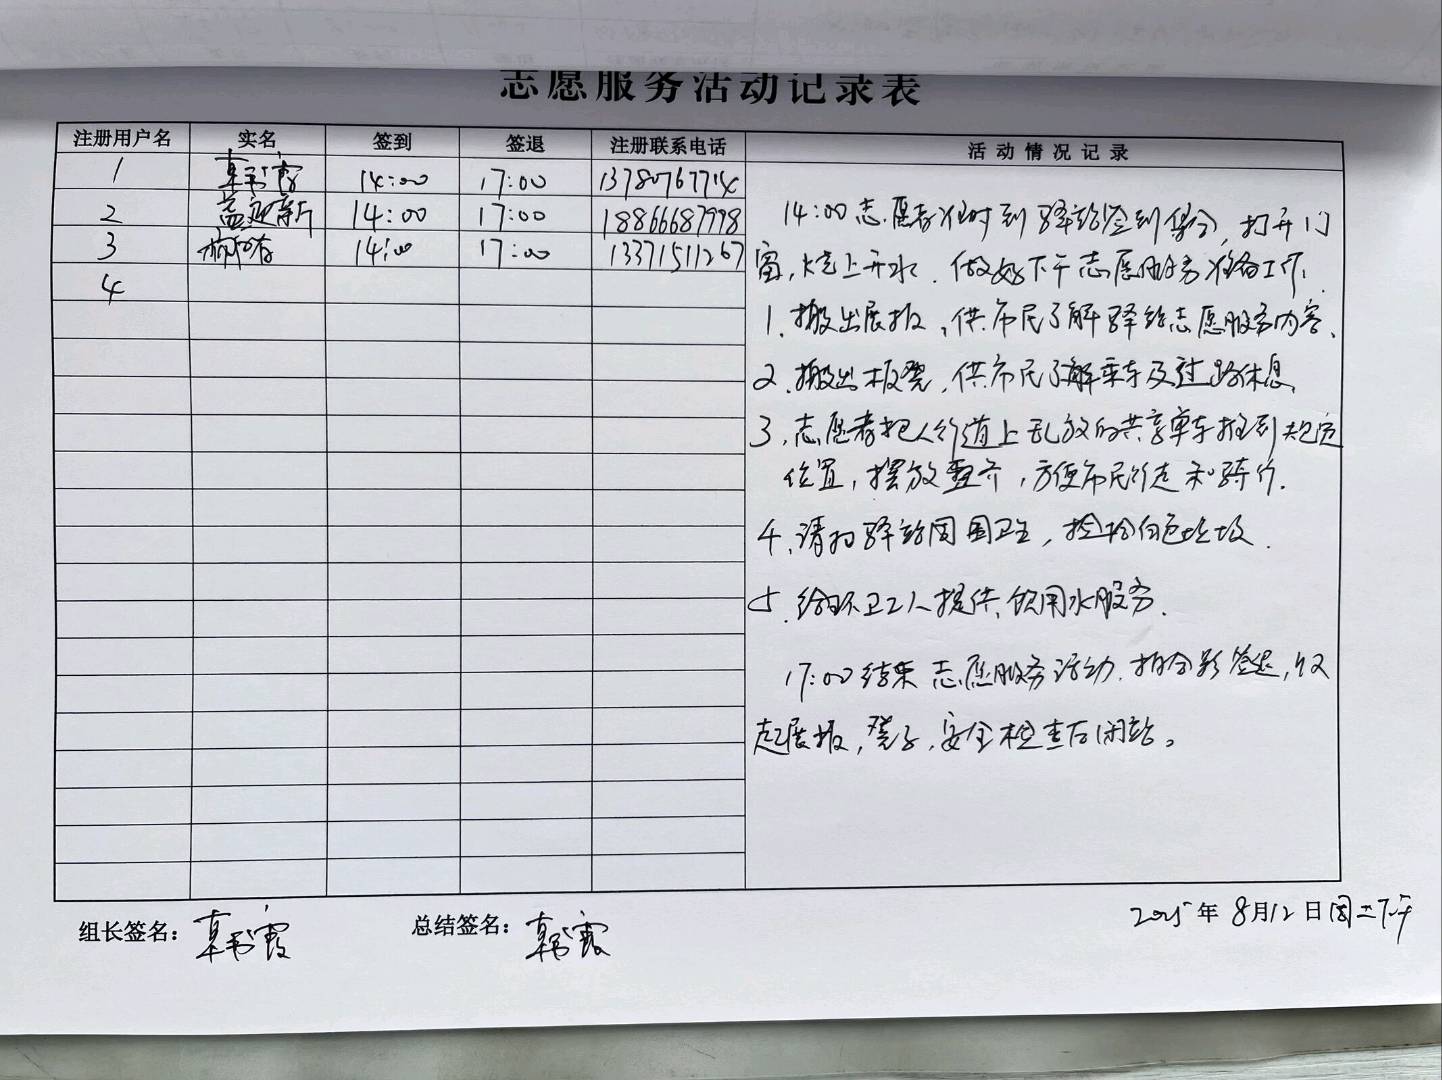 志愿服务活动记录表
注册用户名 实名 签到 签退 注册联系电话 活动情况记录
1 14:00 17:00 13780767714
2 盖迎新 14:00 17:00 18866687998
3 14:00 17:00 13371511267
4
14:00志愿者准时到驿站签到集合,打开门
窗,烧上开水.做好下午志愿服务准备工作.
1.搬出展报,供市民了解驿站志愿服务内容.
2.搬出板凳,供市民了解乘车及过路休息.
3.志愿者把人行道上乱放的共享单车推到规定
位置,摆放整齐,方便市民行走和骑行.
4.请扫驿站周围卫生,捡拾白色垃圾.
5.给环卫工人提供饮用水服务.
17:00结束志愿服务活动.拍合影签退,收
起展报,凳子,安全检查后闭站。
组长签名: 总结签名:
2025年8月12日周二下午